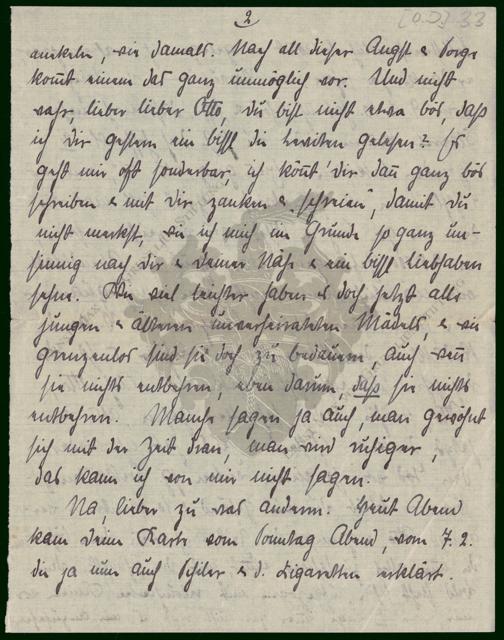 2
[O.D.] 33
ankeln, wie damals. Nach all dieser Angst & Sorge
kom̅t einem das ganz unmöglich vor. Und nicht
wahr, lieber lieber Otto, du bist nicht etwa bös, daß
ich dir gestern ein bissl die Leviten gelesen? Es
geht mir oft sonderbar, ich kön̅t' dir dan̅ ganz bös
schreiben & mit dir zanken & „schreien", damit du
nicht merkst, wie ich mich im Grunde so ganz un-
sinnig nach dir & deiner Nähe & ein bissl Liebhaben
sehne. Wie viel leichter haben es doch jetzt alle
jungen & älteren unverheirateten Mädels, & wie
grenzenlos sind sie doch zu bedauern, auch wen̅
sie nichts entbehren, eben darum, daß sie nichts
entbehren. Manche sagen ja auch, man gewöhnt
sich mit der Zeit dran, man wird ruhiger,
das kann ich von mir nicht sagen.
Na, lieber zu was anderm. Heut Abend
kam deine Karte vom Sonntag Abend, vom 7.2.
die ja nun auch & d. Zigaretten erklärt.